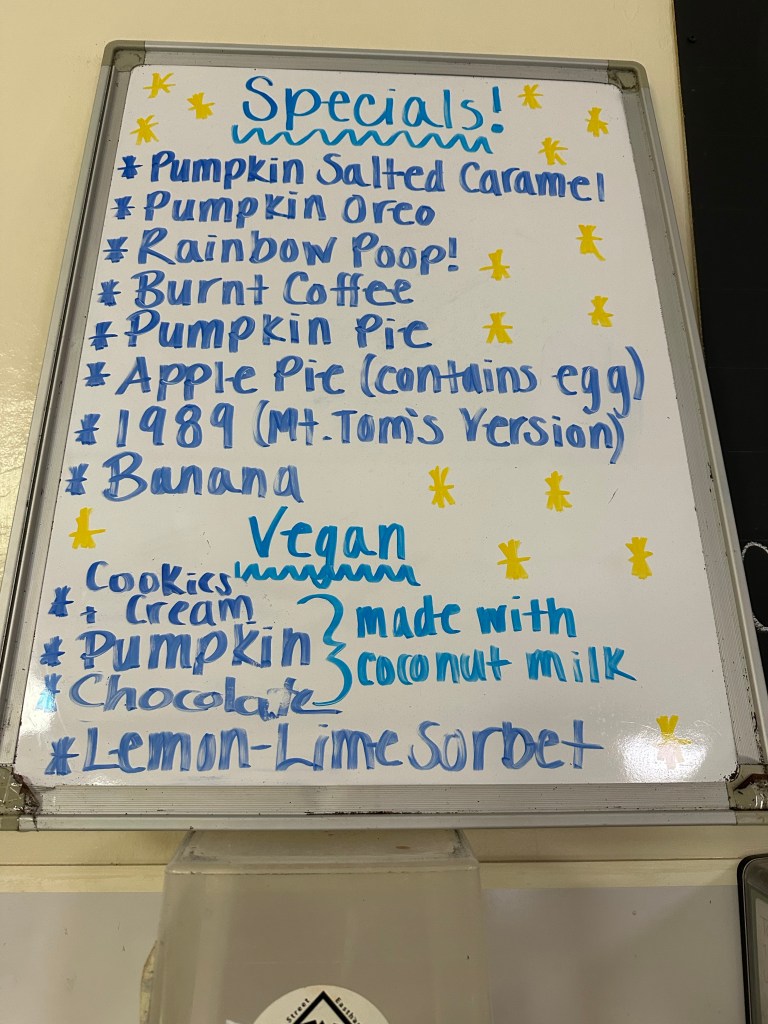 Specials!
* Pumpkin Salted Caramel
* Pumpkin Oreo
* Rainbow Poop!
* Burnt Coffee
* Pumpkin Pie
* Apple Pie (contains egg)
* 1989 (Mt. Tom's Version)
* Banana
Vegan
* Cookies
+ Cream
* Pumpkin
* Chocolate
} made with
coconut milk
* Lemon-Lime Sorbet
Street